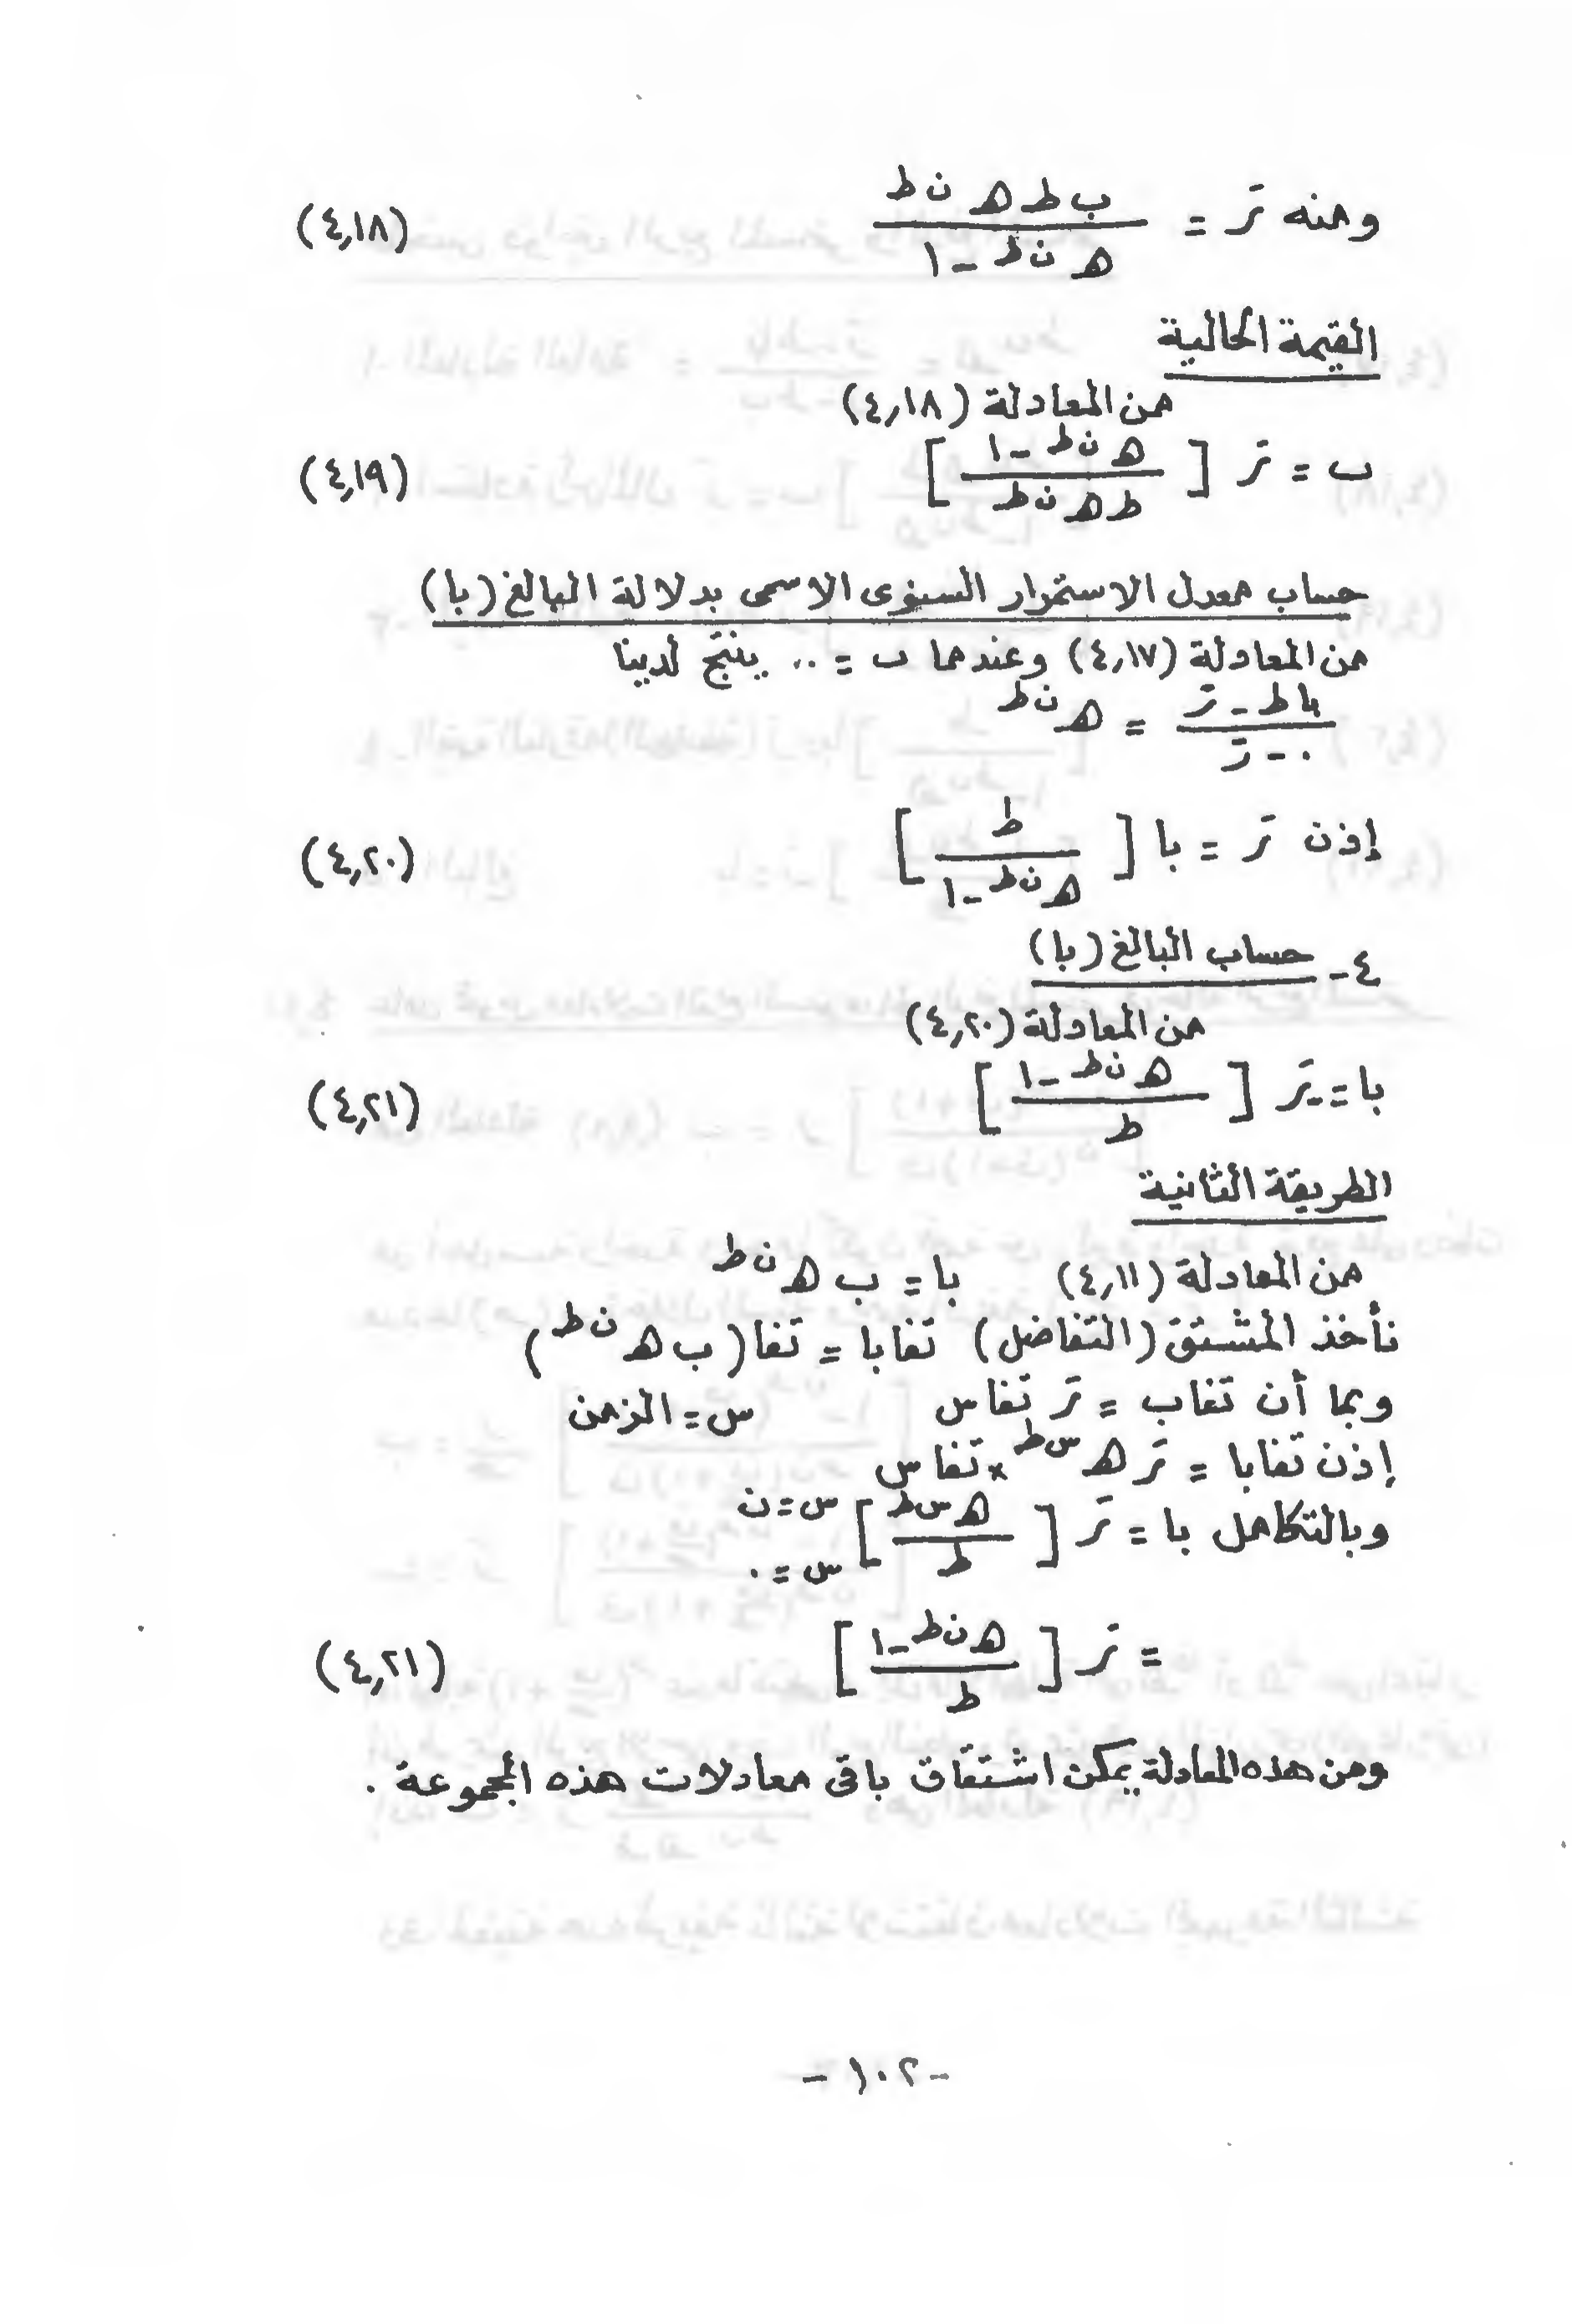 ومنه تَر = ب ط ه^ن ط / ه^ن ط - ١ (٤,١٨)
القيمة الحالية
من المعادلة (٤,١٨)
ب = تَر [ ه^ن ط - ١ / ط ه^ن ط ] (٤,١٩)
حساب معدل الاستمرار السنوى الاسمى بدلالة البالغ (با)
من المعادلة (٤,١٧) وعندما ب = ٠٠ ينتج لدينا
با ط - تَر / ٠ - تَر = ه^ن ط
إذن تَر = با [ ط / ه^ن ط - ١ ] (٤,٢٠)
٤- حساب البالغ (با)
من المعادلة (٤,٢٠)
با = تَر [ ه^ن ط - ١ / ط ] (٤,٢١)
الطريقة الثانية
من المعادلة (٤,١١) با = ب ه^ن ط
نأخذ المشتق (التفاضل) تفابا = تفا (ب ه^ن ط)
وبما أن تفاب = تَر تفاس س = الزمن
إذن تفابا = تَر ه^س ط × تفاس
وبالتكامل با = تَر [ ه^س ط / ط ] س = ن س = ٠
= تَر [ ه^ن ط - ١ / ط ] (٤,٢١)
ومن هذه المعادلة يمكن اشتقاق باقى معادلات هذه المجموعة .
- ١٠٢ -